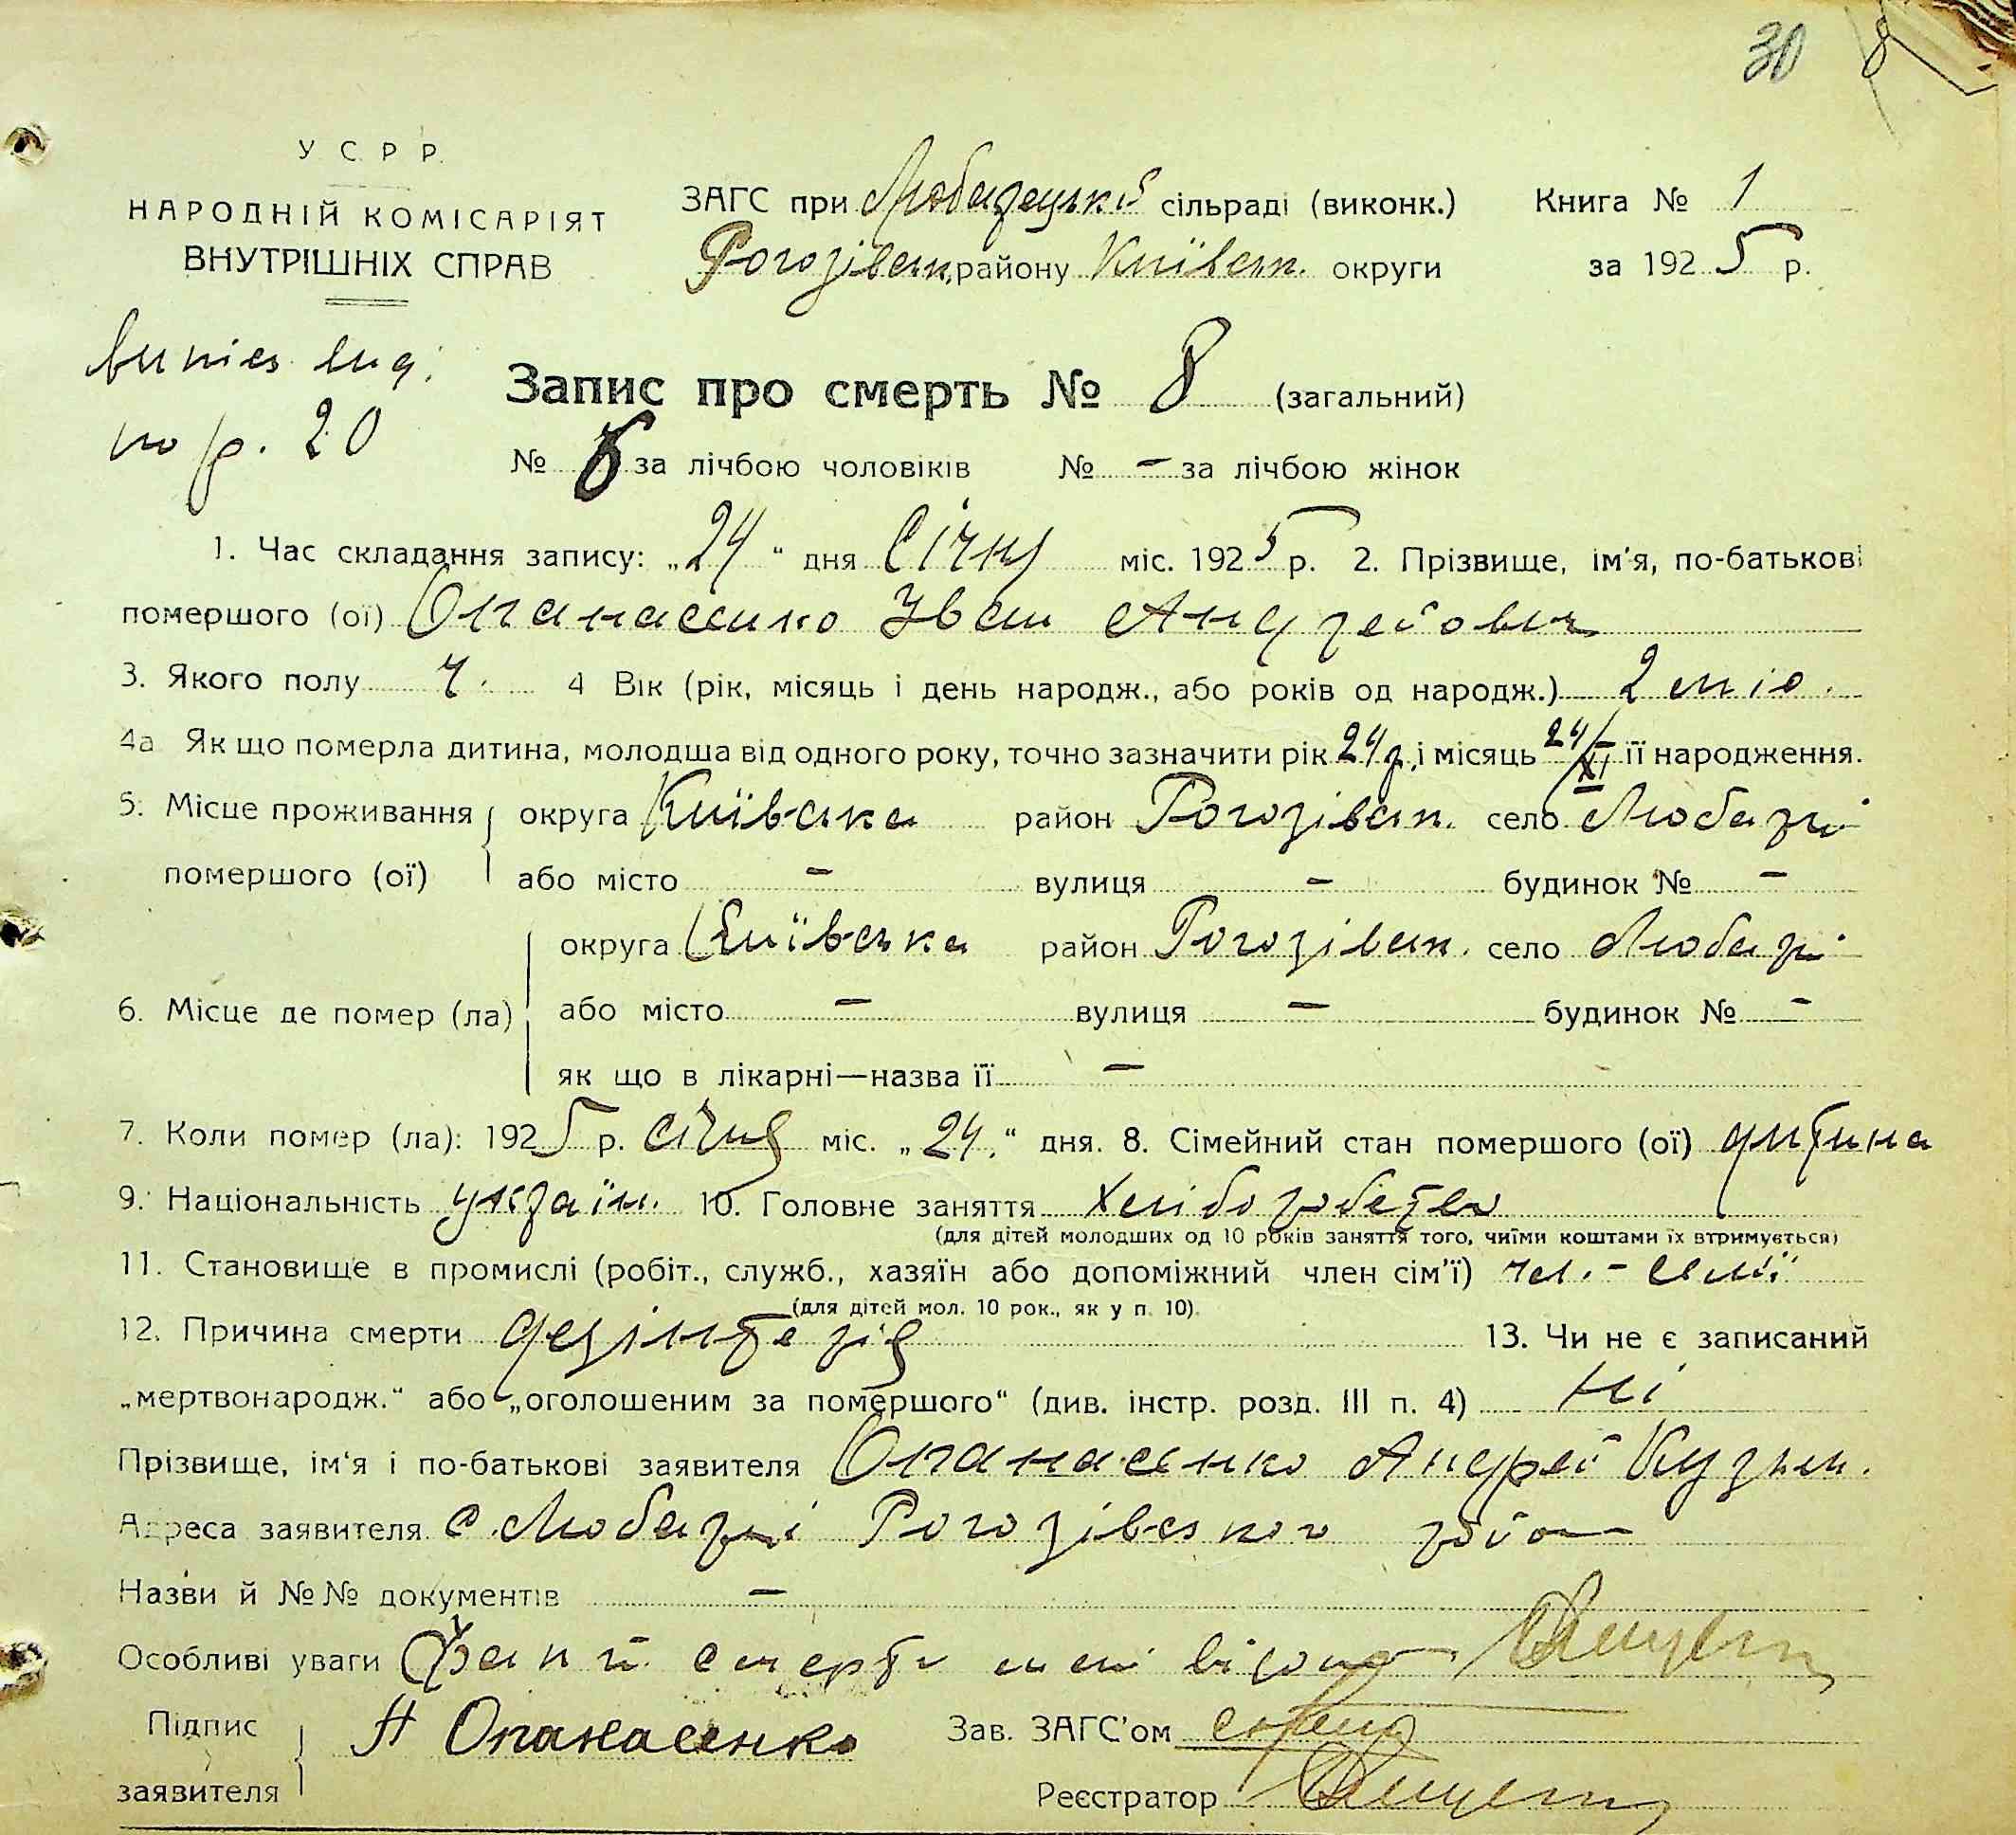 30
8
У С Р Р.
НАРОДНІЙ КОМІСАРІЯТ
ВНУТРІШНІХ СПРАВ
ЗАГС при Любарецькій сільраді (виконк.)
Рогозівськ. району Київськ. округи
Книга № 1
за 1925 р.
по р. 20
Запис про смерть № 8 (загальний)
№ 6 за лічбою чоловіків № – за лічбою жінок
1. Час складання запису: „24“ дня Січня міс. 1925 р. 2. Прізвище, ім'я, по-батькові
помершого (ої) Опанасенко Іван Андрейович
3. Якого полу ч. 4 Вік (рік, місяць і день народж., або років од народж.) 2 міс.
4а Як що померла дитина, молодша від одного року, точно зазначити рік 24 р. і місяць 24/XI її народження.
5. Місце проживання округа Київська район Рогозівськ. село Любарці
помершого (ої) або місто – вулиця – будинок № –
округа Київська район Рогозівськ. село Любарці
6. Місце де помер (ла) або місто – вулиця – будинок № –
як що в лікарні—назва її –
7. Коли помер (ла): 1925 р. січня міс. „24.“ дня. 8. Сімейний стан помершого (ої) дитина
9. Національність україн. 10. Головне заняття хліборобство
(для дітей молодших од 10 років заняття того, чиїми коштами їх втримується)
11. Становище в промислі (робіт., служб., хазяїн або допоміжний член сім'ї) чл. - сем'ї
(для дітей мол. 10 рок., як у п. 10).
12. Причина смерти дезінтерія 13. Чи не є записаний
„мертвонародж.“ або „оголошеним за помершого“ (див. інстр. розд. III п. 4) Ні
Прізвище, ім'я і по-батькові заявителя Опанасенко Андрей Кузьм.
Адреса заявителя с. Любарці Рогозівського
Назви й №№ документів –
Особливі уваги Факт смерти мені відомо
Підпис
заявителя
А Опанасенко
Зав. ЗАГС'ом
Реєстратор